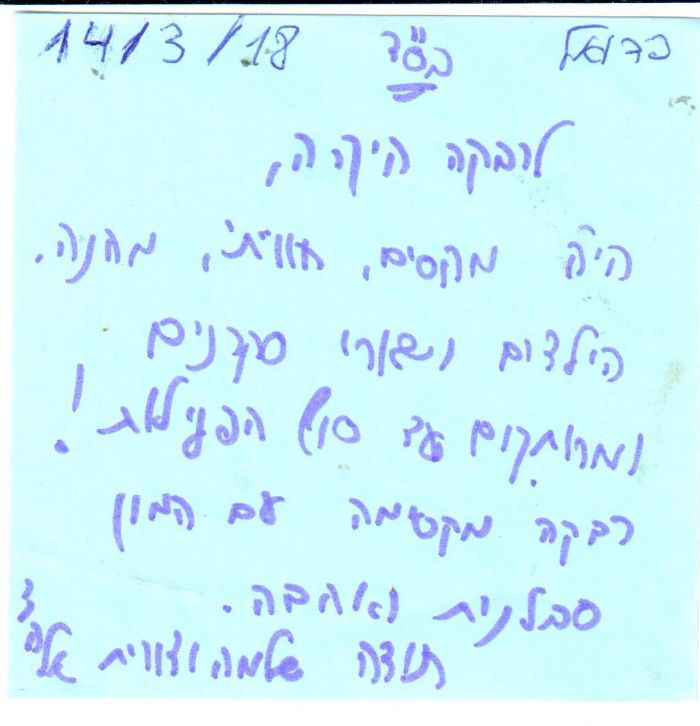 14/3/18 בס"ד ברואל
לרבקה היקרה,
היה מקסים, חוויתי, מהנה.
הילדים נשארו סקרנים
ומרותקים עד סוף הפעילות!
רבקה מקסימה עם המון
סבלנית ואהבה.
תודה שלמה ונורית אלה